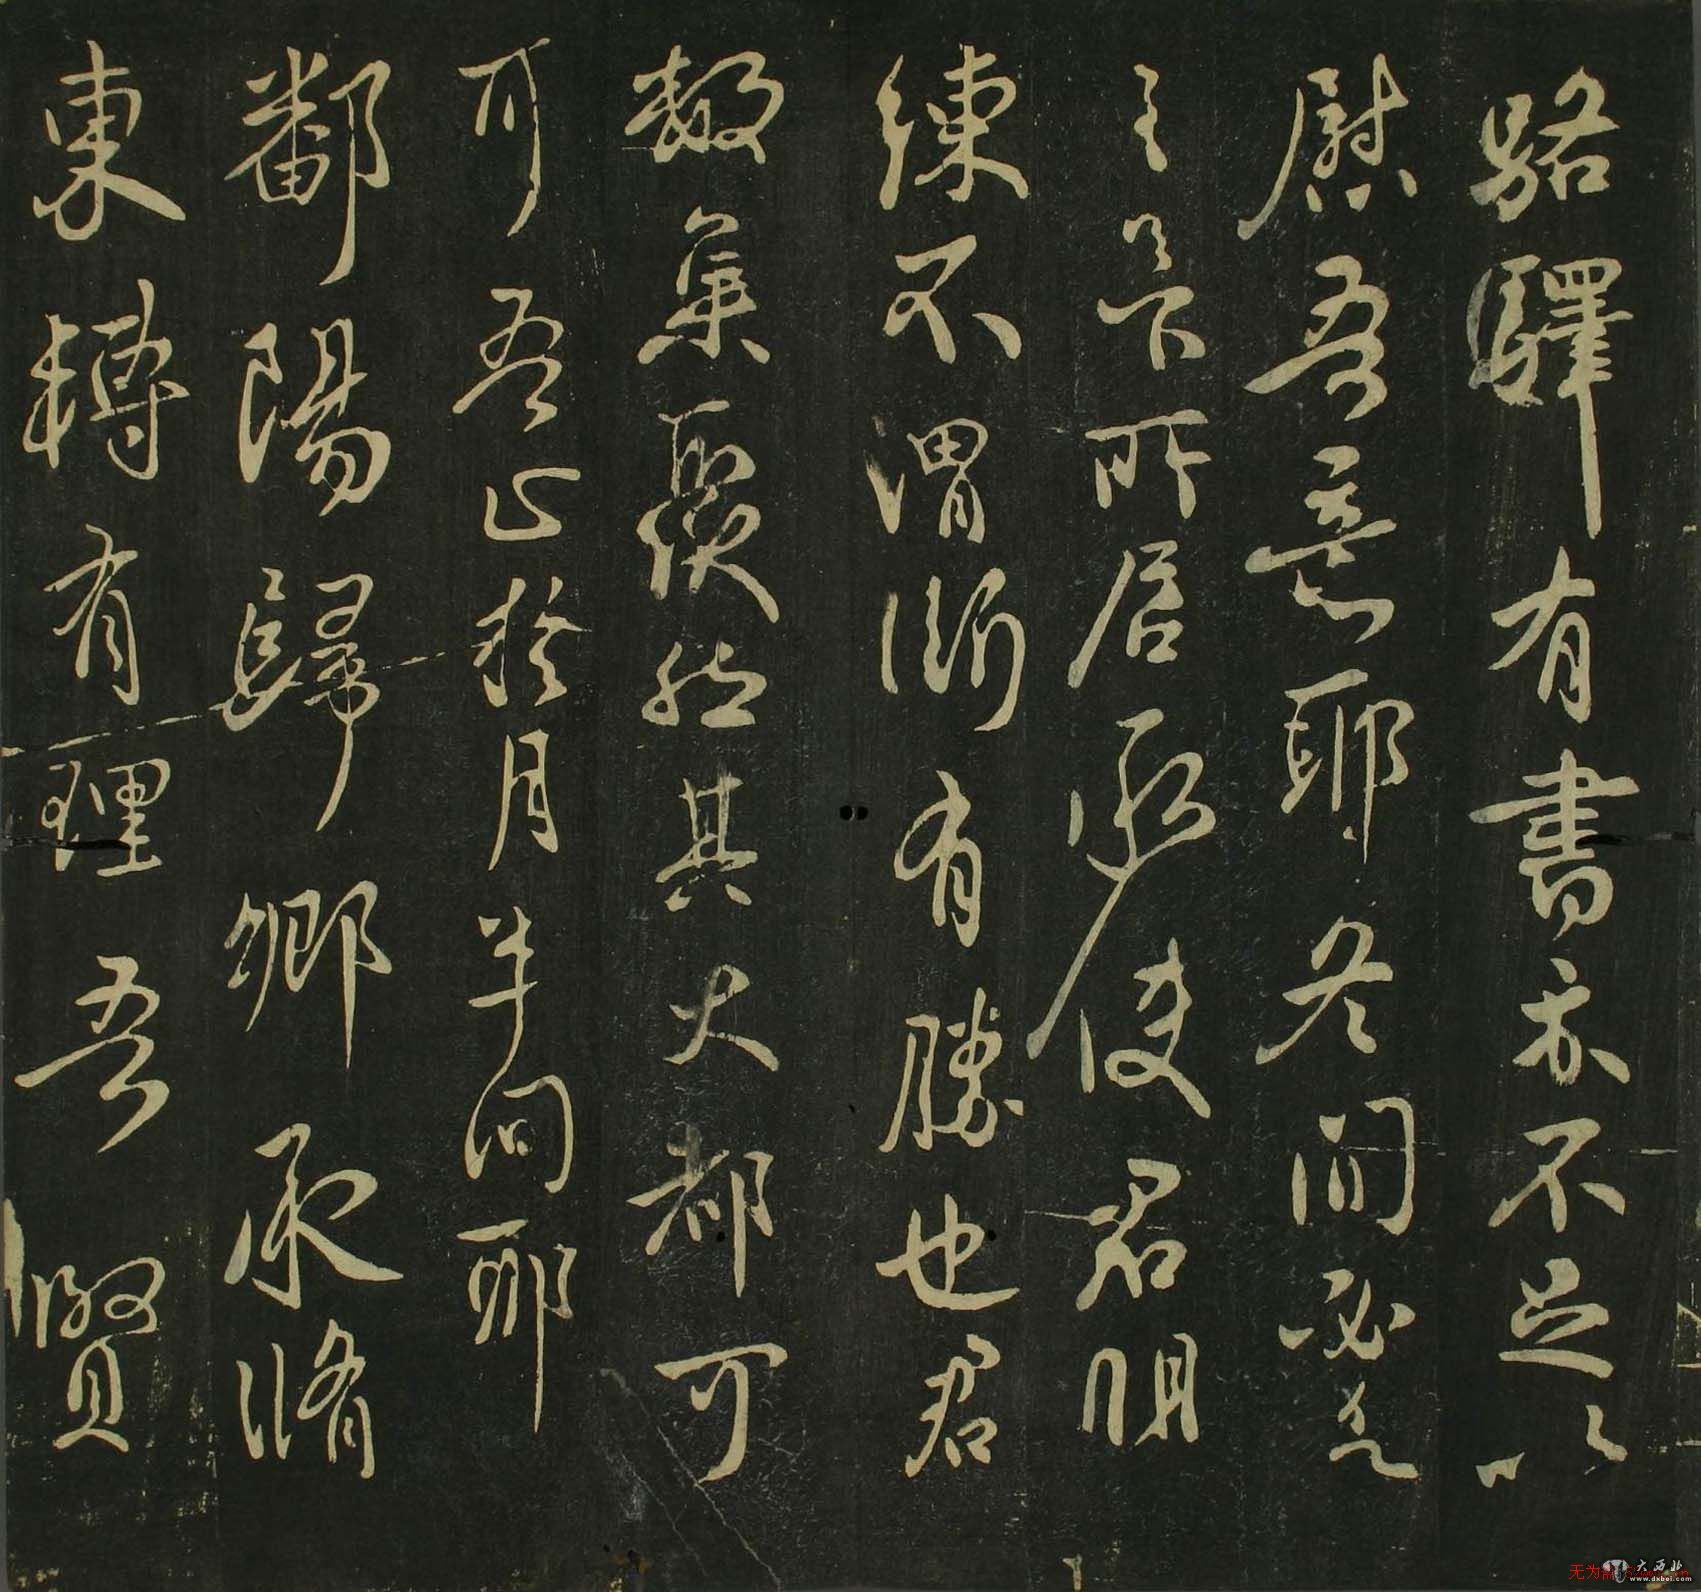 駱驛有書亦不足以
慰吾意耶冬間必
之足下所居承使君明
練不謂漸有勝也君
數集聚然其大都可
可吾正於月半向耶
鄱陽歸鄉承脩
東轉有理吾賢
无为
大西北
www.dxbei.com